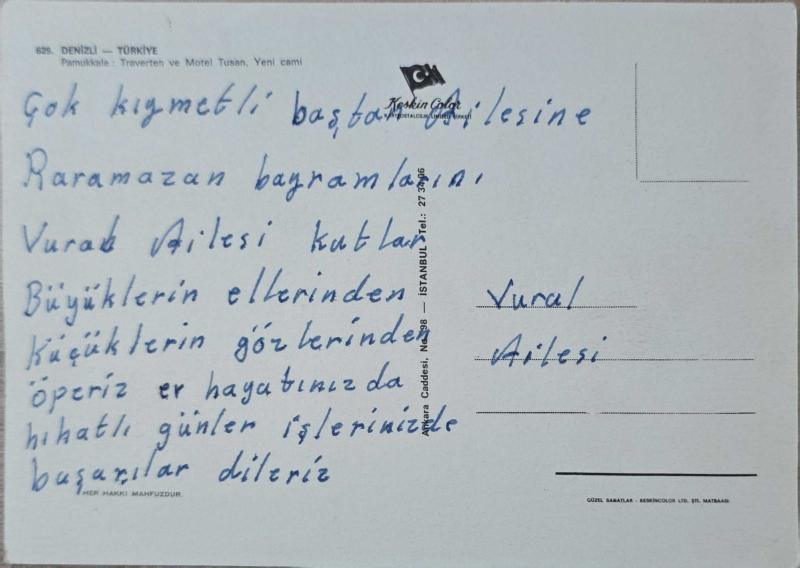 629. DENİZLİ — TÜRKİYE
Pamukkale : Traverten ve Motel Tusan, Yeni cami
Keskin Color
KARTPOSTALCILIK LİMİTED ŞİRKETİ
Çok kıymetli baştan Ailesine
Raramazan bayramlarını
Vural Ailesi kutlar
Büyüklerin ellerinden
Küçüklerin gözlerinden
öperiz er hayatınızda
hıhatlı günler işlerinizde
başarılar dileriz
Ankara Caddesi, No. 98 — İSTANBUL Tel.: 27 34 06
Vural
Ailesi
HER HAKKI MAHFUZDUR.
GÜZEL SANATLAR - KESKİNCOLOR LTD. ŞTİ. MATBAASI